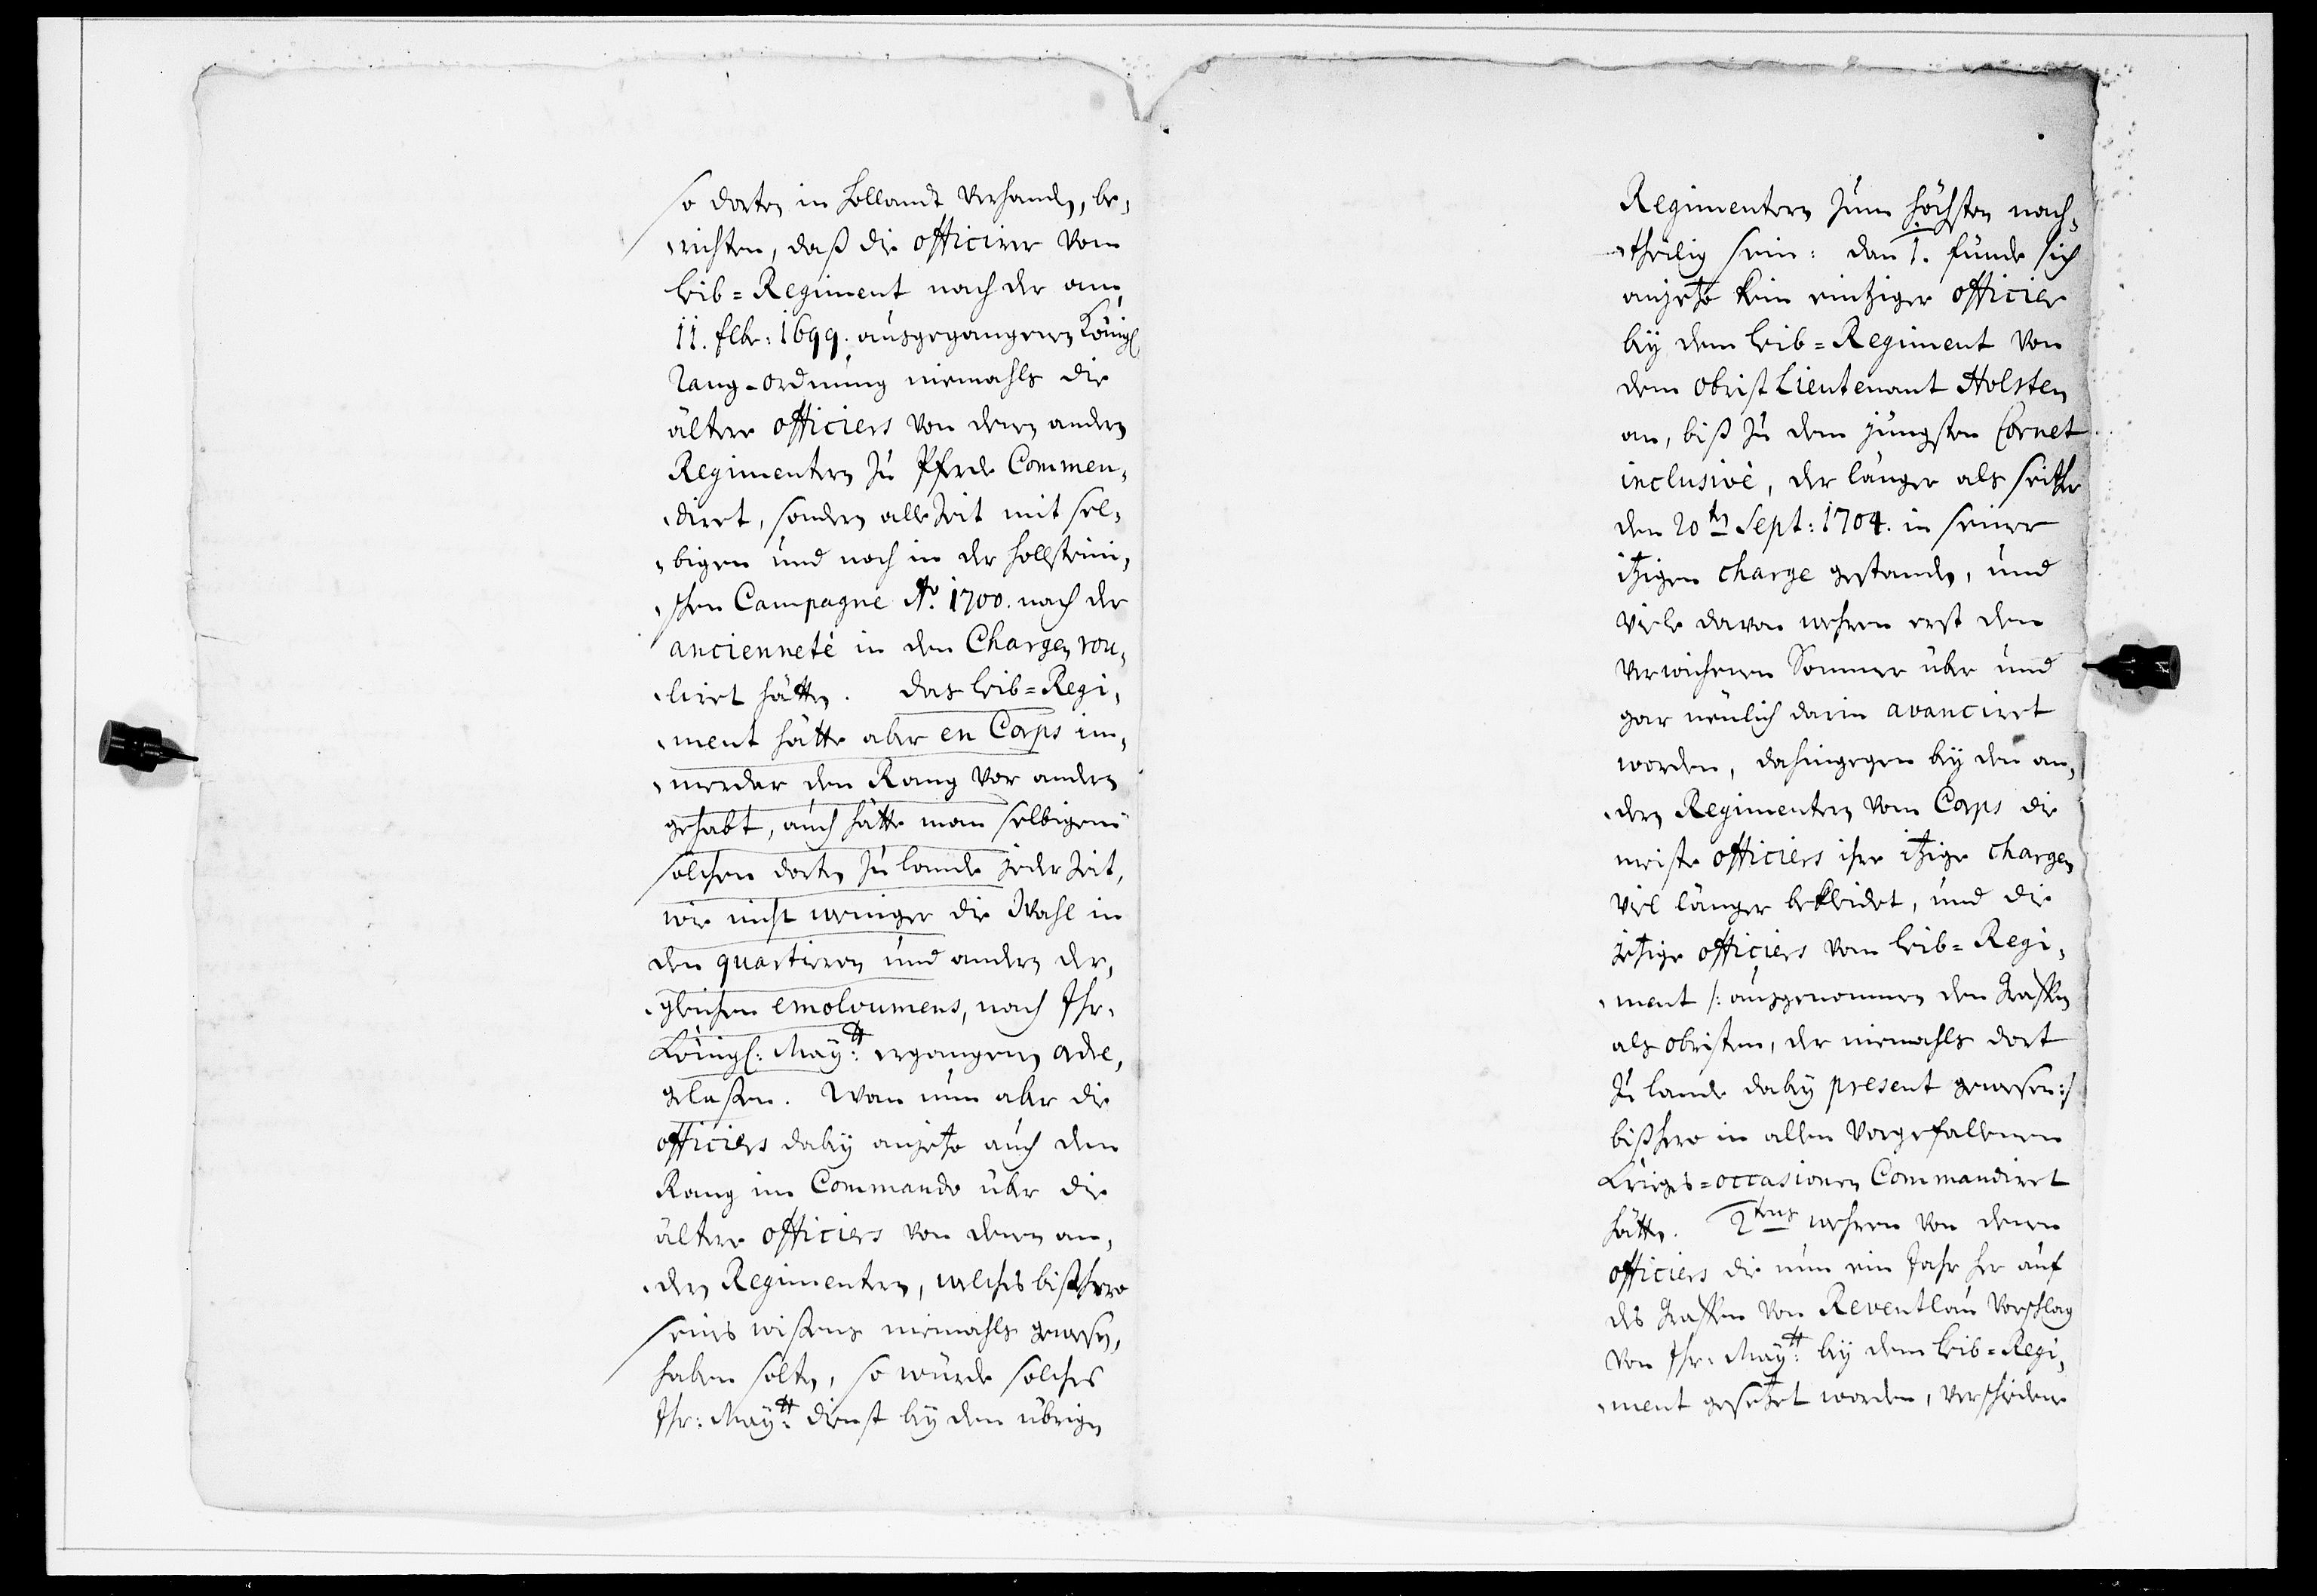 so dorten in Hollandt verhanden, be¬
richten, daß die officirer vom
Leib-Regiment nach der am
11. febr: 1699. ausgegangenen Königl
Rang-ordnung niemahls die
ältere officiers von denen andern
Regimentern zu Pferde Commen¬
diret, sondern alle Zeit mit sel¬
bigen und noch in der hollsteini¬
schen Campagne Ao. 1700. nach der
ancienneté in den Chargen rou¬
liret hätten. Das Leib-Regi¬
ment hätte aber en Corps im¬
merdar den Rang vor andern
gehabt, auch hätte man selbigem
solchen dorten zu lande jeder Zeit,
wie nicht weniger die Wahl in
den quartieren und andern der¬
gleichen emoloumens, nach Ihr.
Königl: Maytt: ergangenen ordre,
gelaßen. Wan nun aber die
officiers dabey anjetzo auch den
Rang im Commando über die
ältere officiers von denen an¬
dern Regimentern, welches bißhero
seines wißens niemahls gewesen,
haben solten, so würde solches
Ihr: Maytt: dienst bey dem übrigen
Regimentern zum höchsten nach¬
theilig sein: dan 1. funde sich
anjetzo kein eintziger officier
bey dem Leib-Regiment von
dem obrist Lieutenant Holsten
an, biß zu dem jüngsten Cornet
inclusivè, der länger als seither
den 20ten Sept: 1704. in seiner
itzigen charge gestanden, und
viele davon wehren erst den
verwichenen Sommer über und
gar neulich darin avanciret
worden, dahingegen bey den an¬
dern Regimentern vom Corps die
meiste officiers ihre itzige chargen
viel länger bekleidet, und die
jetzige officiers vom Leib-Regi¬
ment /: ausgenommen den Graffen
als obristen, der niemahls dort
zu lande dabey present gewesen:/
bißhero in allen vorgefallenen
Krieges-occasionen Commandiret
hätten. 2tens wehren von denen
officiers die nun ein Jahr her auf
des Graffen von Reventlau Vorschlag
von Ihr. Maytt: bey dem Leib-Regi¬
ment gesetzet worden, verschiedene